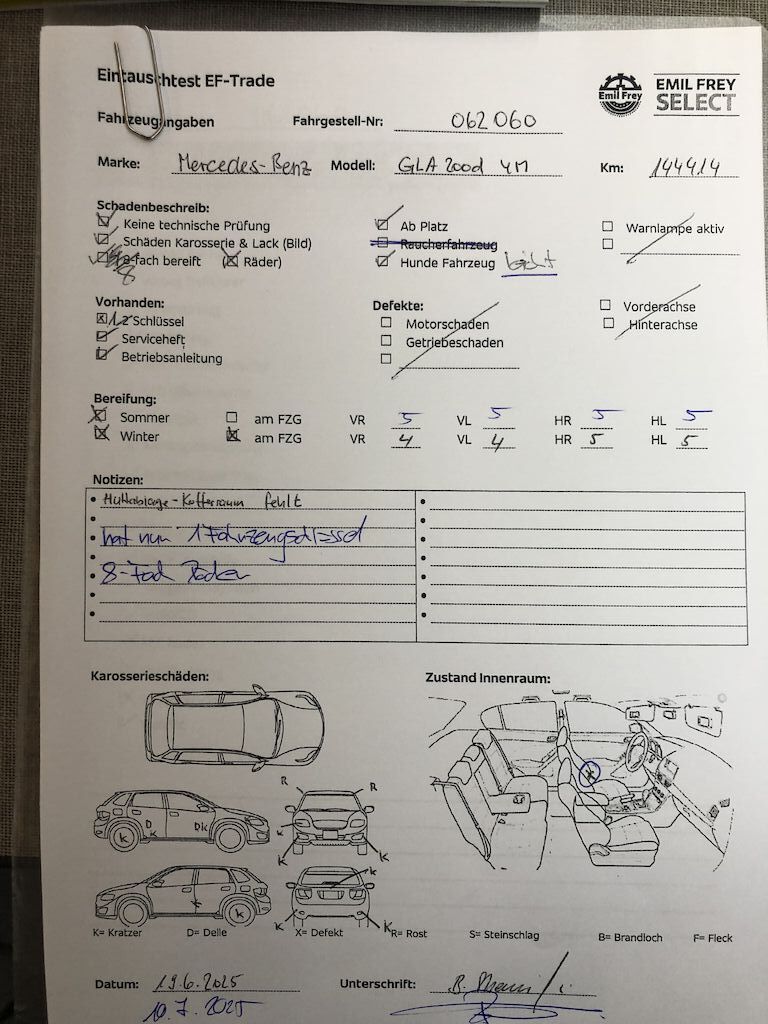 Eintauschtest EF-Trade
Emil Frey EMIL FREY SELECT
Fahrzeugangaben Fahrgestell-Nr: 062 060
Marke: Mercedes-Benz Modell: GLA 200d 4M Km: 144414
Schadenbeschreib:
Keine technische Prüfung Ab Platz Warnlampe aktiv
Schäden Karosserie & Lack (Bild) Raucherfahrzeug
8-fach bereift ( Räder) Hunde Fahrzeug leicht
Vorhanden: Defekte: Vorderachse
Schlüssel Motorschaden Hinterachse
Serviceheft Getriebeschaden
Betriebsanleitung
Bereifung:
Sommer am FZG VR 5 VL 5 HR 5 HL 5
Winter am FZG VR 4 VL 4 HR 5 HL 5
Notizen:
Hutablage-Kofferraum fehlt
hat nur 1 Fahrzeugschlüssel
8-Fach Räder
Karosserieschäden: Zustand Innenraum:
R R
D K DK K K
K K K
K K K
K= Kratzer D= Delle X= Defekt R= Rost S= Steinschlag B= Brandloch F= Fleck
Datum: 19.6.2025 Unterschrift:
10.7.2025